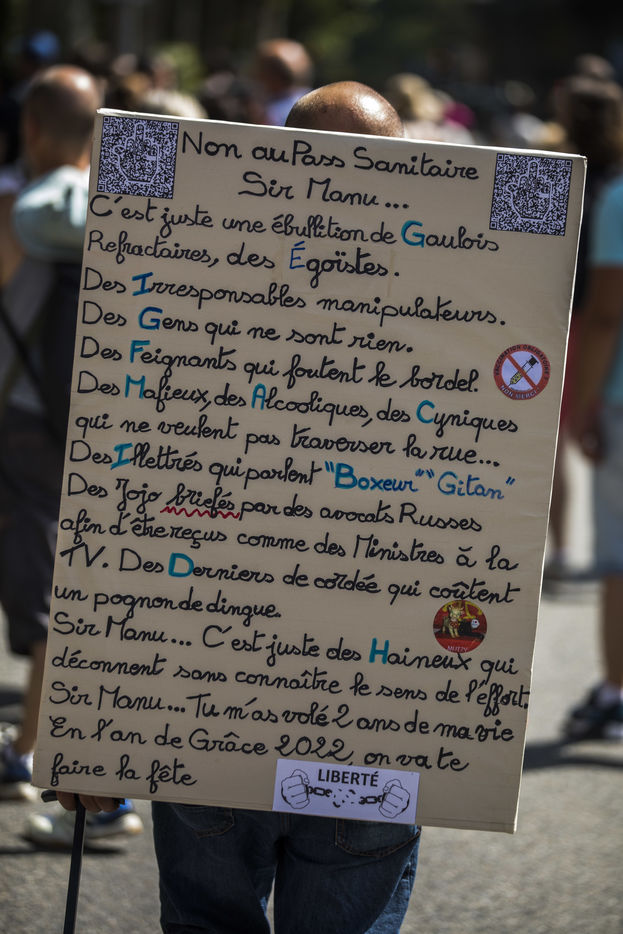 Non au Pass Sanitaire
Sir Manu...
C'est juste une ébullition de Gaulois
Refractaires, des Égoïstes.
Des Irresponsables manipulateurs.
Des Gens qui ne sont rien.
Des Feignants qui foutent le bordel.
Des Mafieux, des Alcooliques, des Cyniques
qui ne veulent pas traverser la rue...
Des Illettrés qui parlent "Boxeur" "Gitan"
Des Jojo briefés par des avocats Russes
afin d'être reçus comme des Ministres à la
TV. Des Derniers de cordée qui coûtent
un pognon de dingue.
Sir Manu... C'est juste des Haineux qui
déconnent sans connaître le sens de l'effort.
Sir Manu... Tu m'as volé 2 ans de ma vie
En l'an de Grâce 2022, on va te
faire la fête
VACCINATION OBLIGATOIRE
NON MERCI
MUTZY
LIBERTÉ